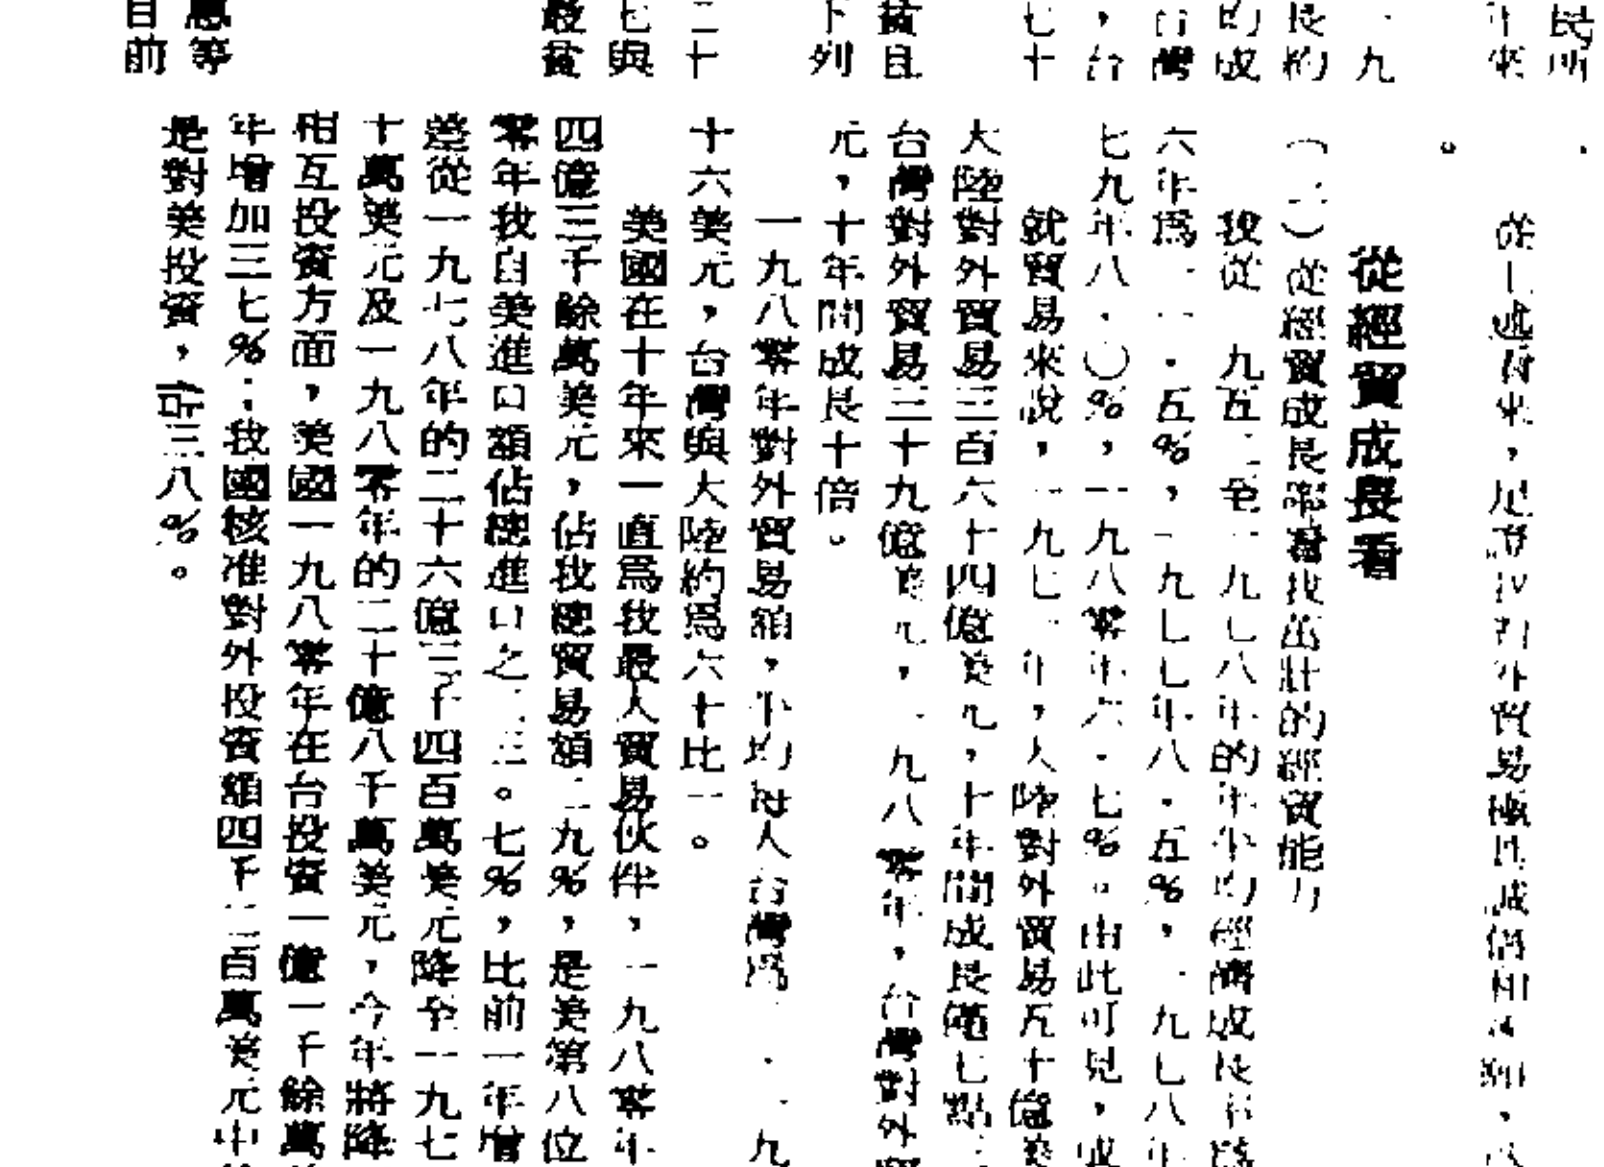 民所
年來
一九
長約
的成
台灣
，台
七十
貧且
下列
二十
七與
最貧
惠等
目前
。
從上述看來，足證我對外貿易極具
從經貿成長看
（二）從經貿成長率看我茁壯的經貿能力
我從一九五二至一九七八年的年平均經濟成長率為
六年為一一．五％，一九七七年八．五％，一九七八年
七九年八．〇％，一九八零年六．七％。由此可見，
就貿易來說，一九七一年，大陸對外貿易五十億美
大陸對外貿易三百六十四億美元，十年間成長僅七點
台灣對外貿易三十九億美元，一九八零年，台灣對外貿
元，十年間成長十倍。
一九八零年對外貿易額，平均每人台灣為
十六美元，台灣與大陸約為六十比一。
美國在十年來一直為我最大貿易伙伴，一九八零年
四億三千餘萬美元，佔我總貿易額二九％，是美第八位
零年我自美進口額佔總進口之二三。七％，比前一年增
差從一九七八年的二十六億三千四百萬美元降至一九七
十萬美元及一九八零年的二十億八千萬美元，今年將降
相互投資方面，美國一九八零年在台投資一億一千餘萬
年增加三七％；我國核准對外投資額四千二百萬美元中
是對美投資，佔三八％。